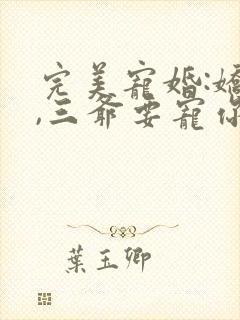 完美寵婚:嬌
,三爺要寵你
葉玉卿